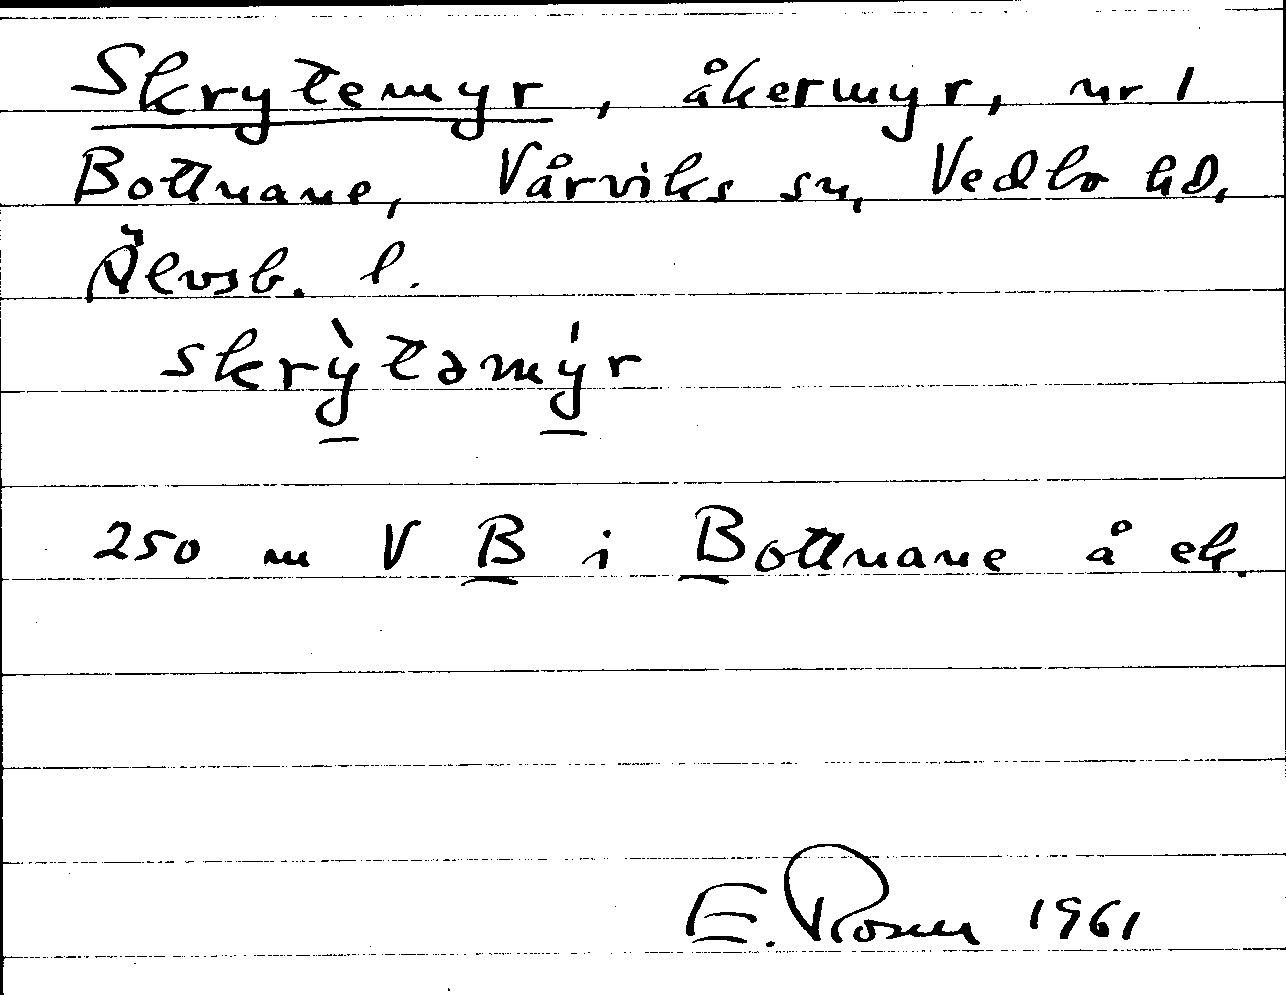 Skrytemyr, åkermyr, nr 1
Bottnane, Vårviks sn, Vedbo hd,
Älvsb. l.
skrỳ̠təmý̠r
250 m V B i Bottnane å ek.
E. Rosell 1961